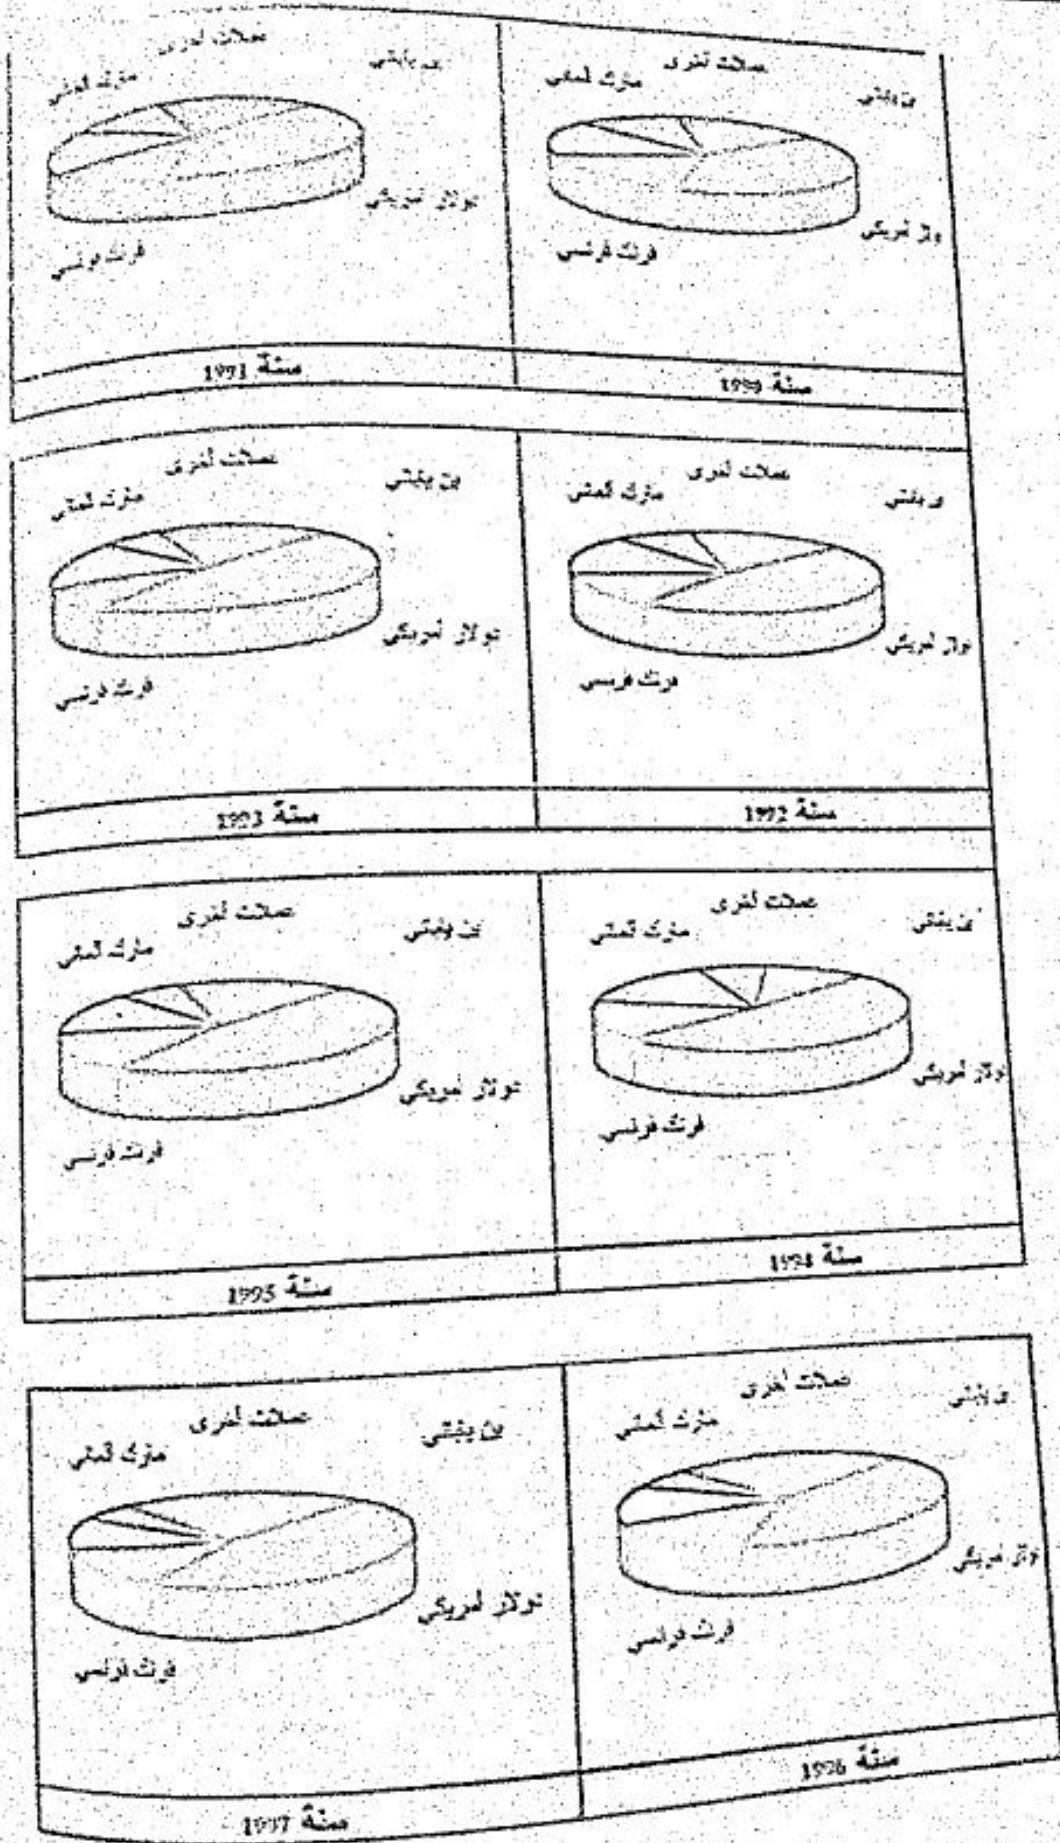 عملات أخرى
مارك ألماني
ين ياباني
دولار أمريكي
فرنك فرنسي
سنة 1990
عملات أخرى
مارك ألماني
ين ياباني
دولار أمريكي
فرنك فرنسي
سنة 1991
عملات أخرى
مارك ألماني
ين ياباني
دولار أمريكي
فرنك فرنسي
سنة 1992
عملات أخرى
مارك ألماني
ين ياباني
دولار أمريكي
فرنك فرنسي
سنة 1993
عملات أخرى
مارك ألماني
ين ياباني
دولار أمريكي
فرنك فرنسي
سنة 1994
عملات أخرى
مارك ألماني
ين ياباني
دولار أمريكي
فرنك فرنسي
سنة 1995
عملات أخرى
مارك ألماني
ين ياباني
دولار أمريكي
فرنك فرنسي
سنة 1996
عملات أخرى
مارك ألماني
ين ياباني
دولار أمريكي
فرنك فرنسي
سنة 1997